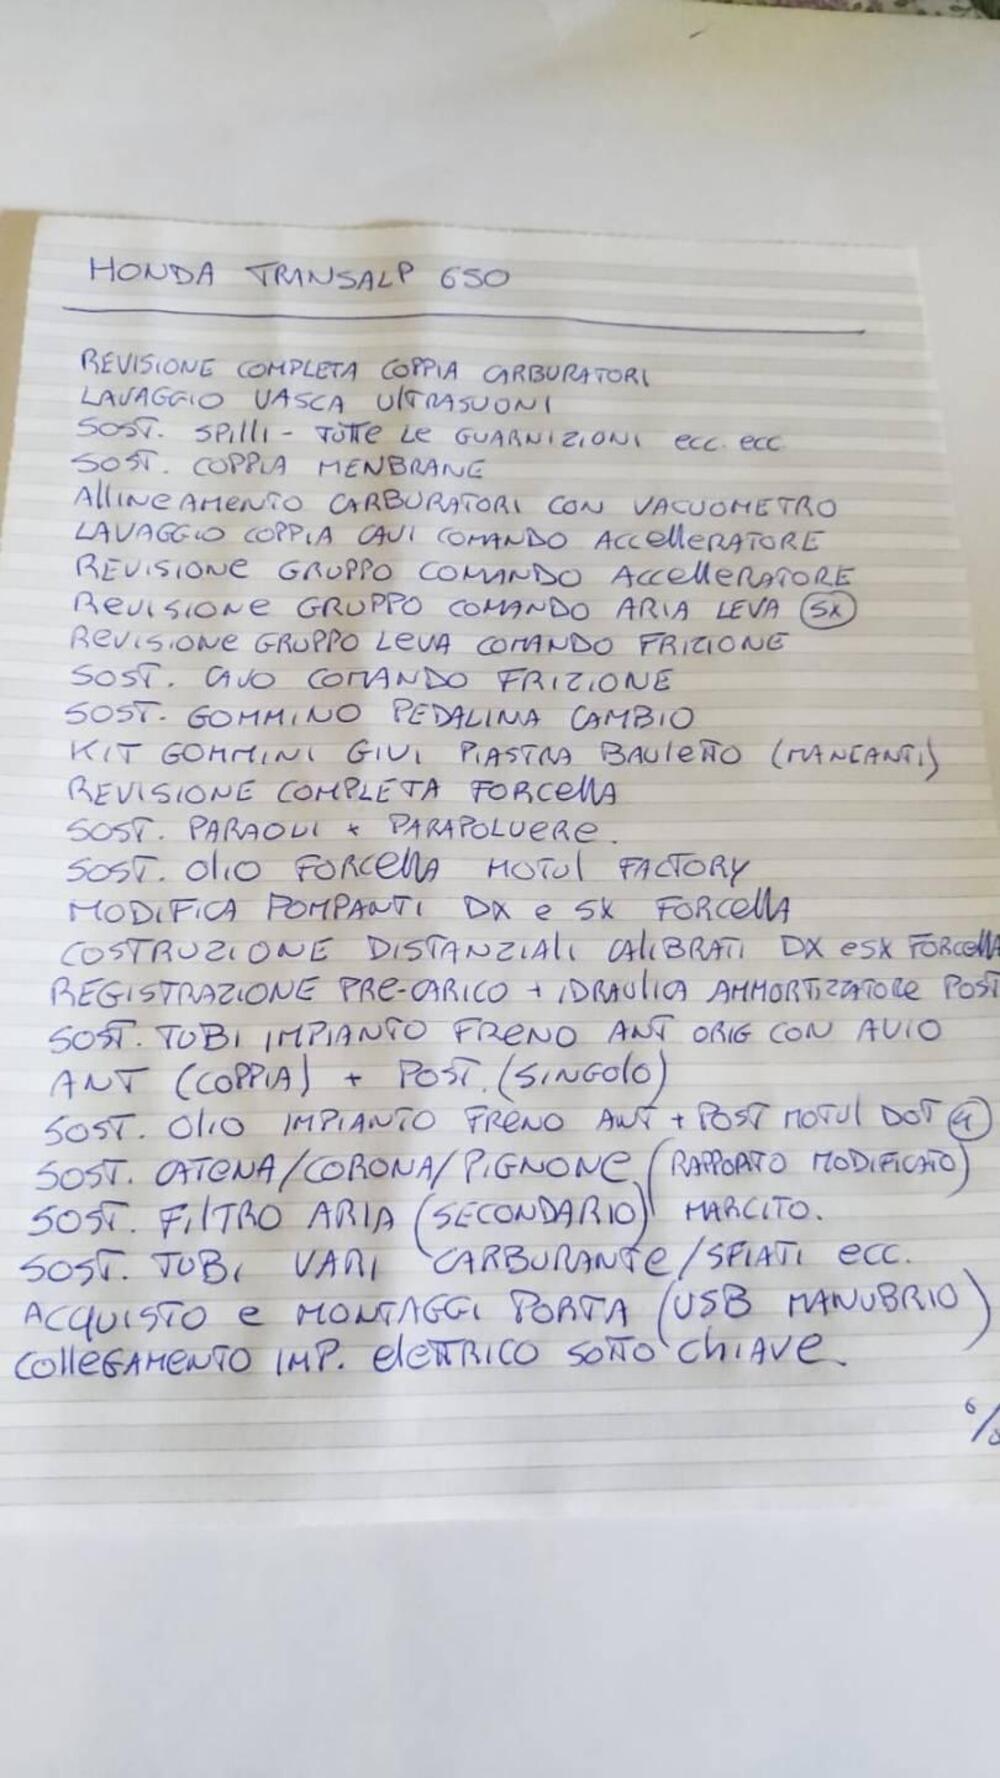 HONDA TRANSALP 650
REVISIONE COMPLETA COPPIA CARBURATORI
LAVAGGIO VASCA ULTRASUONI
SOST. SPILLI - TUTTE LE GUARNIZIONI ECC. ECC
SOST. COPPIA MENBRANE
ALLINEAMENTO CARBURATORI CON VACUOMETRO
LAVAGGIO COPPIA CAVI COMANDO ACCELLERATORE
REVISIONE GRUPPO COMANDO ACCELLERATORE
REVISIONE GRUPPO COMANDO ARIA LEVA SX
REVISIONE GRUPPO LEVA COMANDO FRIZIONE
SOST. CAVO COMANDO FRIZIONE
SOST. GOMMINO PEDALINA CAMBIO
KIT GOMMINI GIVI PIASTRA BAULETTO (MANCANTI)
REVISIONE COMPLETA FORCELLA
SOST. PARAOLI + PARAPOLVERE.
SOST. OLIO FORCELLA MOTUL FACTORY
MODIFICA POMPANTI DX E SX FORCELLA
COSTRUZIONE DISTANZIALI CALIBRATI DX E SX FORCELLA
REGISTRAZIONE PRE-CARICO + IDRAULICA AMMORTIZZATORE POST
SOST. TUBI IMPIANTO FRENO ANT ORIG CON AVIO
ANT (COPPIA) + POST. (SINGOLO)
SOST. OLIO IMPIANTO FRENO ANT + POST MOTUL DOT 4
SOST. CATENA/CORONA/PIGNONE (RAPPORTO MODIFICATO)
SOST. FILTRO ARIA (SECONDARIO) MARCITO.
SOST. TUBI VARI CARBURANTE/SFIATI ECC.
ACQUISTO E MONTAGGI PORTA (USB MANUBRIO)
COLLEGAMENTO IMP. ELETTRICO SOTTO CHIAVE.